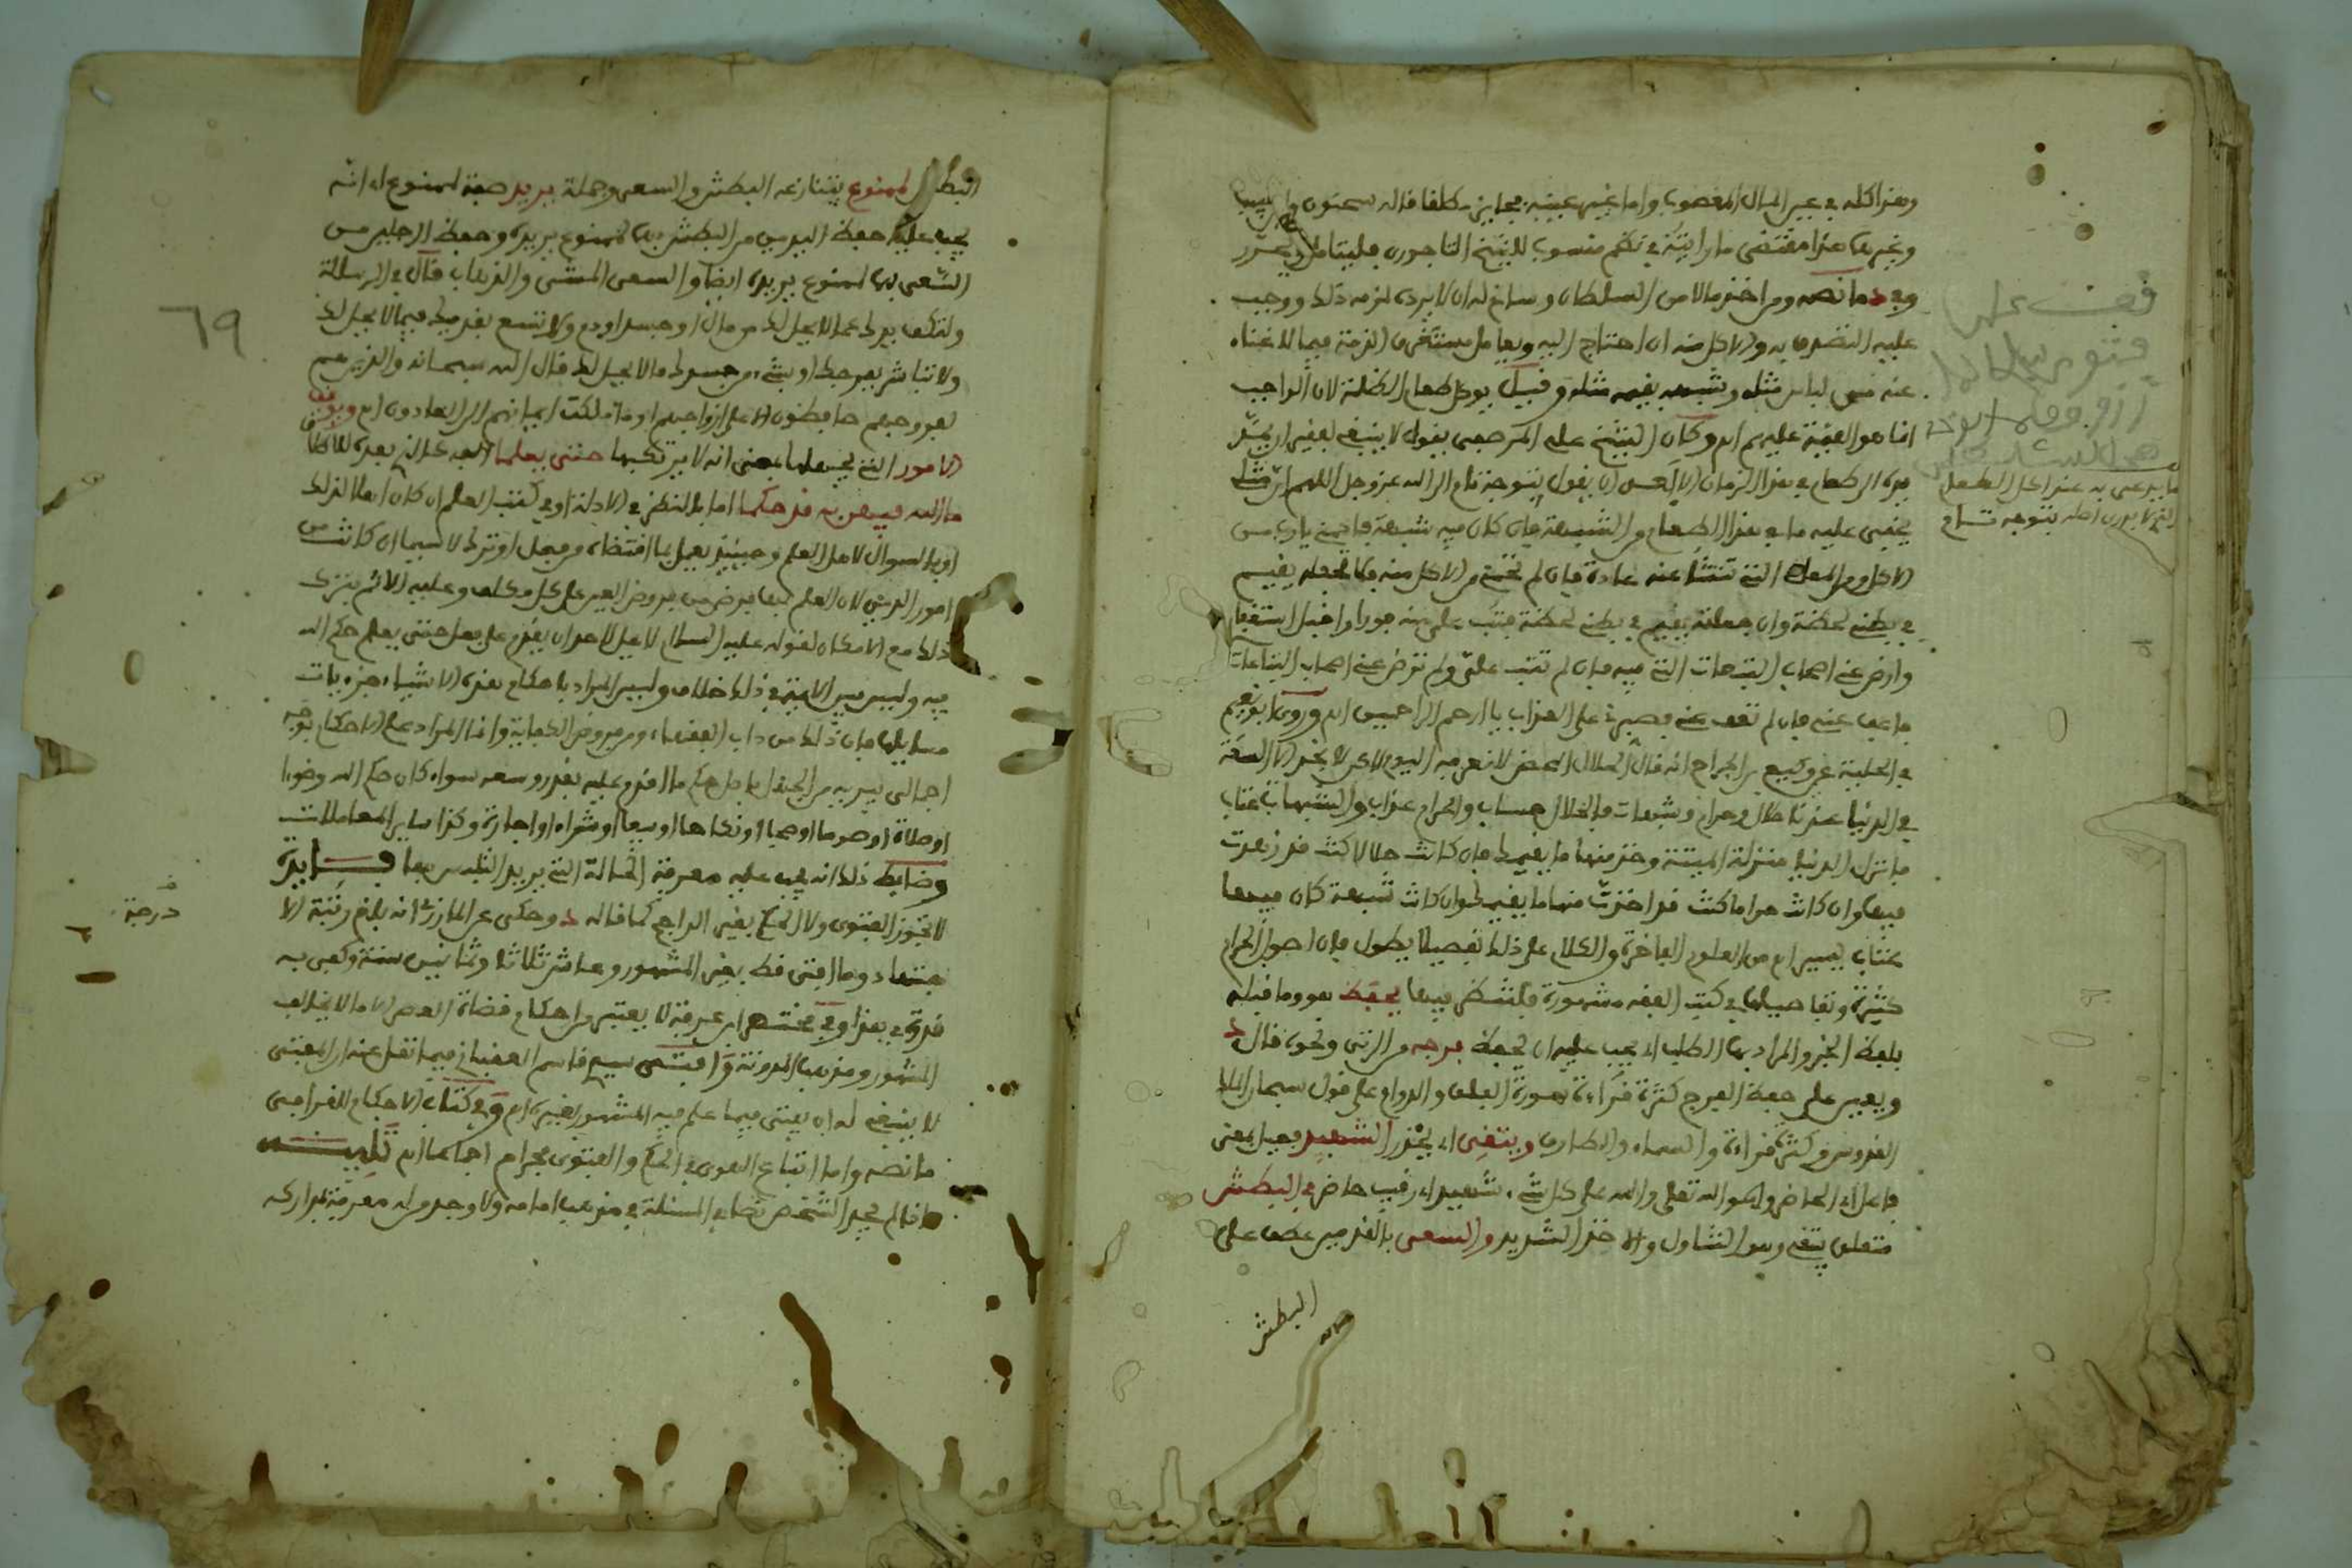 وهذا كله في عين المال المغصوب واما غير عينه فجايز مطلقا قاله سحنون وابن حبيب
وغيرهما هذا مقتضى ما رايته في نظم منسوب للشيخ التاجوري فليتامل ويحرر
وفي د ما نصه ومن اخذ مالا من السلطان وساغ له ان لا يرده لزمه ذلك ووجب
عليه التصدق به والاكل منه ان احتاج اليه ويعامل مستغرق الذمة فيما لا غناء
عنه من لباس مثله وشبهه بقيمة مثله وقيل يوكل طعام الظلمة لان الواجب
انما هو القيمة عليهم اهـ وكان الشيخ علي المرصفي يقول لا ينبغي لفقير ان يمد
يده الى طعام في هذا الزمان الا بعد ان يقول بتوجه تام الى الله عز وجل اللهم ان مثلي
يخفى عليه ما في هذا الطعام من الشبهة فان كان فيه شبهة فاحمني يا رب من
الاكل ومن المعصية التي تنشأ عنه عادة فان لم تحمني من الاكل منه فلا تجعله يقيم
في بطني لحظة وان جعلته يقيم في بطني لحظة فتب علي منه فورا واقبل استغفاري
وارض عني اصحاب التبعات التي فيه فان لم تتب علي ولم ترض عني اصحاب التبعات
فاعف عني فان لم تعف عني فصبرني على العذاب يا ارحم الراحمين اهـ وروى ابو نعيم
في الحلية عن وكيع بن الجراح انه قال الحلال المحض لا نعرفه اليوم لاكن لا نجد الا السعة
في الدنيا عندنا حلال وحرام وشبهات فالحلال حساب والحرام عذاب والشبهات عتاب
فانزل الدنيا منزلة الميتة وخذ منها ما يقيمك فان كانت حلالا كنت قد زهدت
فيها وان كانت حراما كنت قد اخذت منها ما يقيمك وان كانت شبهة كان فيها
عتاب يسير اهـ من العلوم الفاخرة والكلام على ذلك تفصيلا يطول فان اصول الحرام
كثيرة وتفاصيلها في كتب الفقه مشهورة فلتنظر فيها يحفظ هو وما قبله
بلفظ الخبر والمراد بها الطلب اي يجب عليه ان يحفظ فرجه من الزنى ونحوه قال د
ويعين على حفظ الفرج كثرة قراءة سورة الفلق والدوام على قول سبحان الملك
القدوس وكثرة قراءة والسماء والطارق ويتقي اي يحذر الشهيد فعيل بمعنى
فاعل اي الحاضر وهو الله تعلى والله على كل شيء شهيد اي رقيب حاضر في البطش
متعلق بيتقي وهو التناول والاخذ الشديد والسعي بالقدمين عطف على
البطش
قف على
ما يدعى به عند اكل الطعام
الذي لا يدرى اصله بتوجه تام
البطش لممنوع يتنازعه البطش والسعي وجملة يريد صفة لممنوع اي انه
يجب عليه حفظ اليدين من البطش بهما لممنوع يريده وحفظ الرجلين من
السعي بهما لممنوع يريده ايضا والسعي المشي والذهاب قال في الرسالة
ولتكف يدك عما لا يحل لك من مال او جسد او دم ولا تسع بقدميك فيما لا يحل لك
ولا تباشر بفرجك او بشيء من جسدك ما لا يحل لك قال الله سبحانه والذين هم
لفروجهم حافظون الا على ازواجهم او ما ملكت ايمانهم الى العادون اهـ ويوقف
الامور التي يجهلها بمعنى انه لا يرتكبها حتى يعلما
ما الله فيهن به قد حكما اما بالنظر في الادلة او في كتب العلم ان كان اهلا لذلك
او بالسوال لاهل العلم وحينئذ يعمل بما اقتضاه من فعل او ترك لا سيما ان كانت من
امور الدين لان العلم بها فرض من فروض العين على كل مكلف وعليه الاثم بترك
ذلك مع الامكان لقوله عليه السلام لا يحل لامرئ ان يقدم على فعل حتى يعلم حكم الله
فيه وليس بين الايمة في ذلك خلاف وليس المراد باحكام هذه الاشياء جزءيات
مسايلها فان ذلك من داب الفقهاء ومن فروض الكفاية وانما المراد علم الاحكام بوجه
اجمالي يبريه من الجهل باصل حكم ما اقدم عليه بقدر وسعه سواء كان حكم الله وضوءا
او صلاة او صوما او حجا او نكاحا او بيعا او شراء او اجارة وكذا ساير المعاملات
وضابط ذلك انه يجب عليه معرفة الحالة التي يريد التلبس بها فايدة
لا تجوز الفتوى ولا الحكم بغير الراجح كما قاله د وحكى عن المازري انه بلغ رتبة الا
جتهاد وما افتى قط بغير المشهور وعاش ثلاثا وثمانين سنة وكفى به
قدوة في هذا وفي مختصر ابن عرفة لا يعتبر من احكام قضاة العصر الا ما لا يخالف
المشهور ومذهب المدونة وافتى سيدي قاسم العقباني فيما نقل عنه ان المفتي
لا ينبغي له ان يفتي فيما علم فيه المشهور بغيره اهـ وفي كتاب الاحكام للقرافي
ما نصه واما اتباع الهوى في الحكم والفتوى فحرام اجماعا اهـ تنبيه
فان لم يجد الشخص نصا في المسئلة في مذهب امامه ولا وجد من له معرفة بمداركه
٦٩
درجة